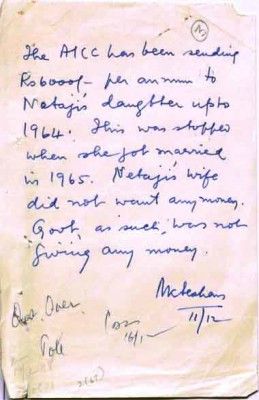 The AICC has been sending
Rs6000/- per annum to
Netaji's daughter upto
1964. This was stopped
when she got married
in 1965. Netaji's wife
did not want any money.
Govt, as such, was not
giving any money.
11/12
Over
16/1